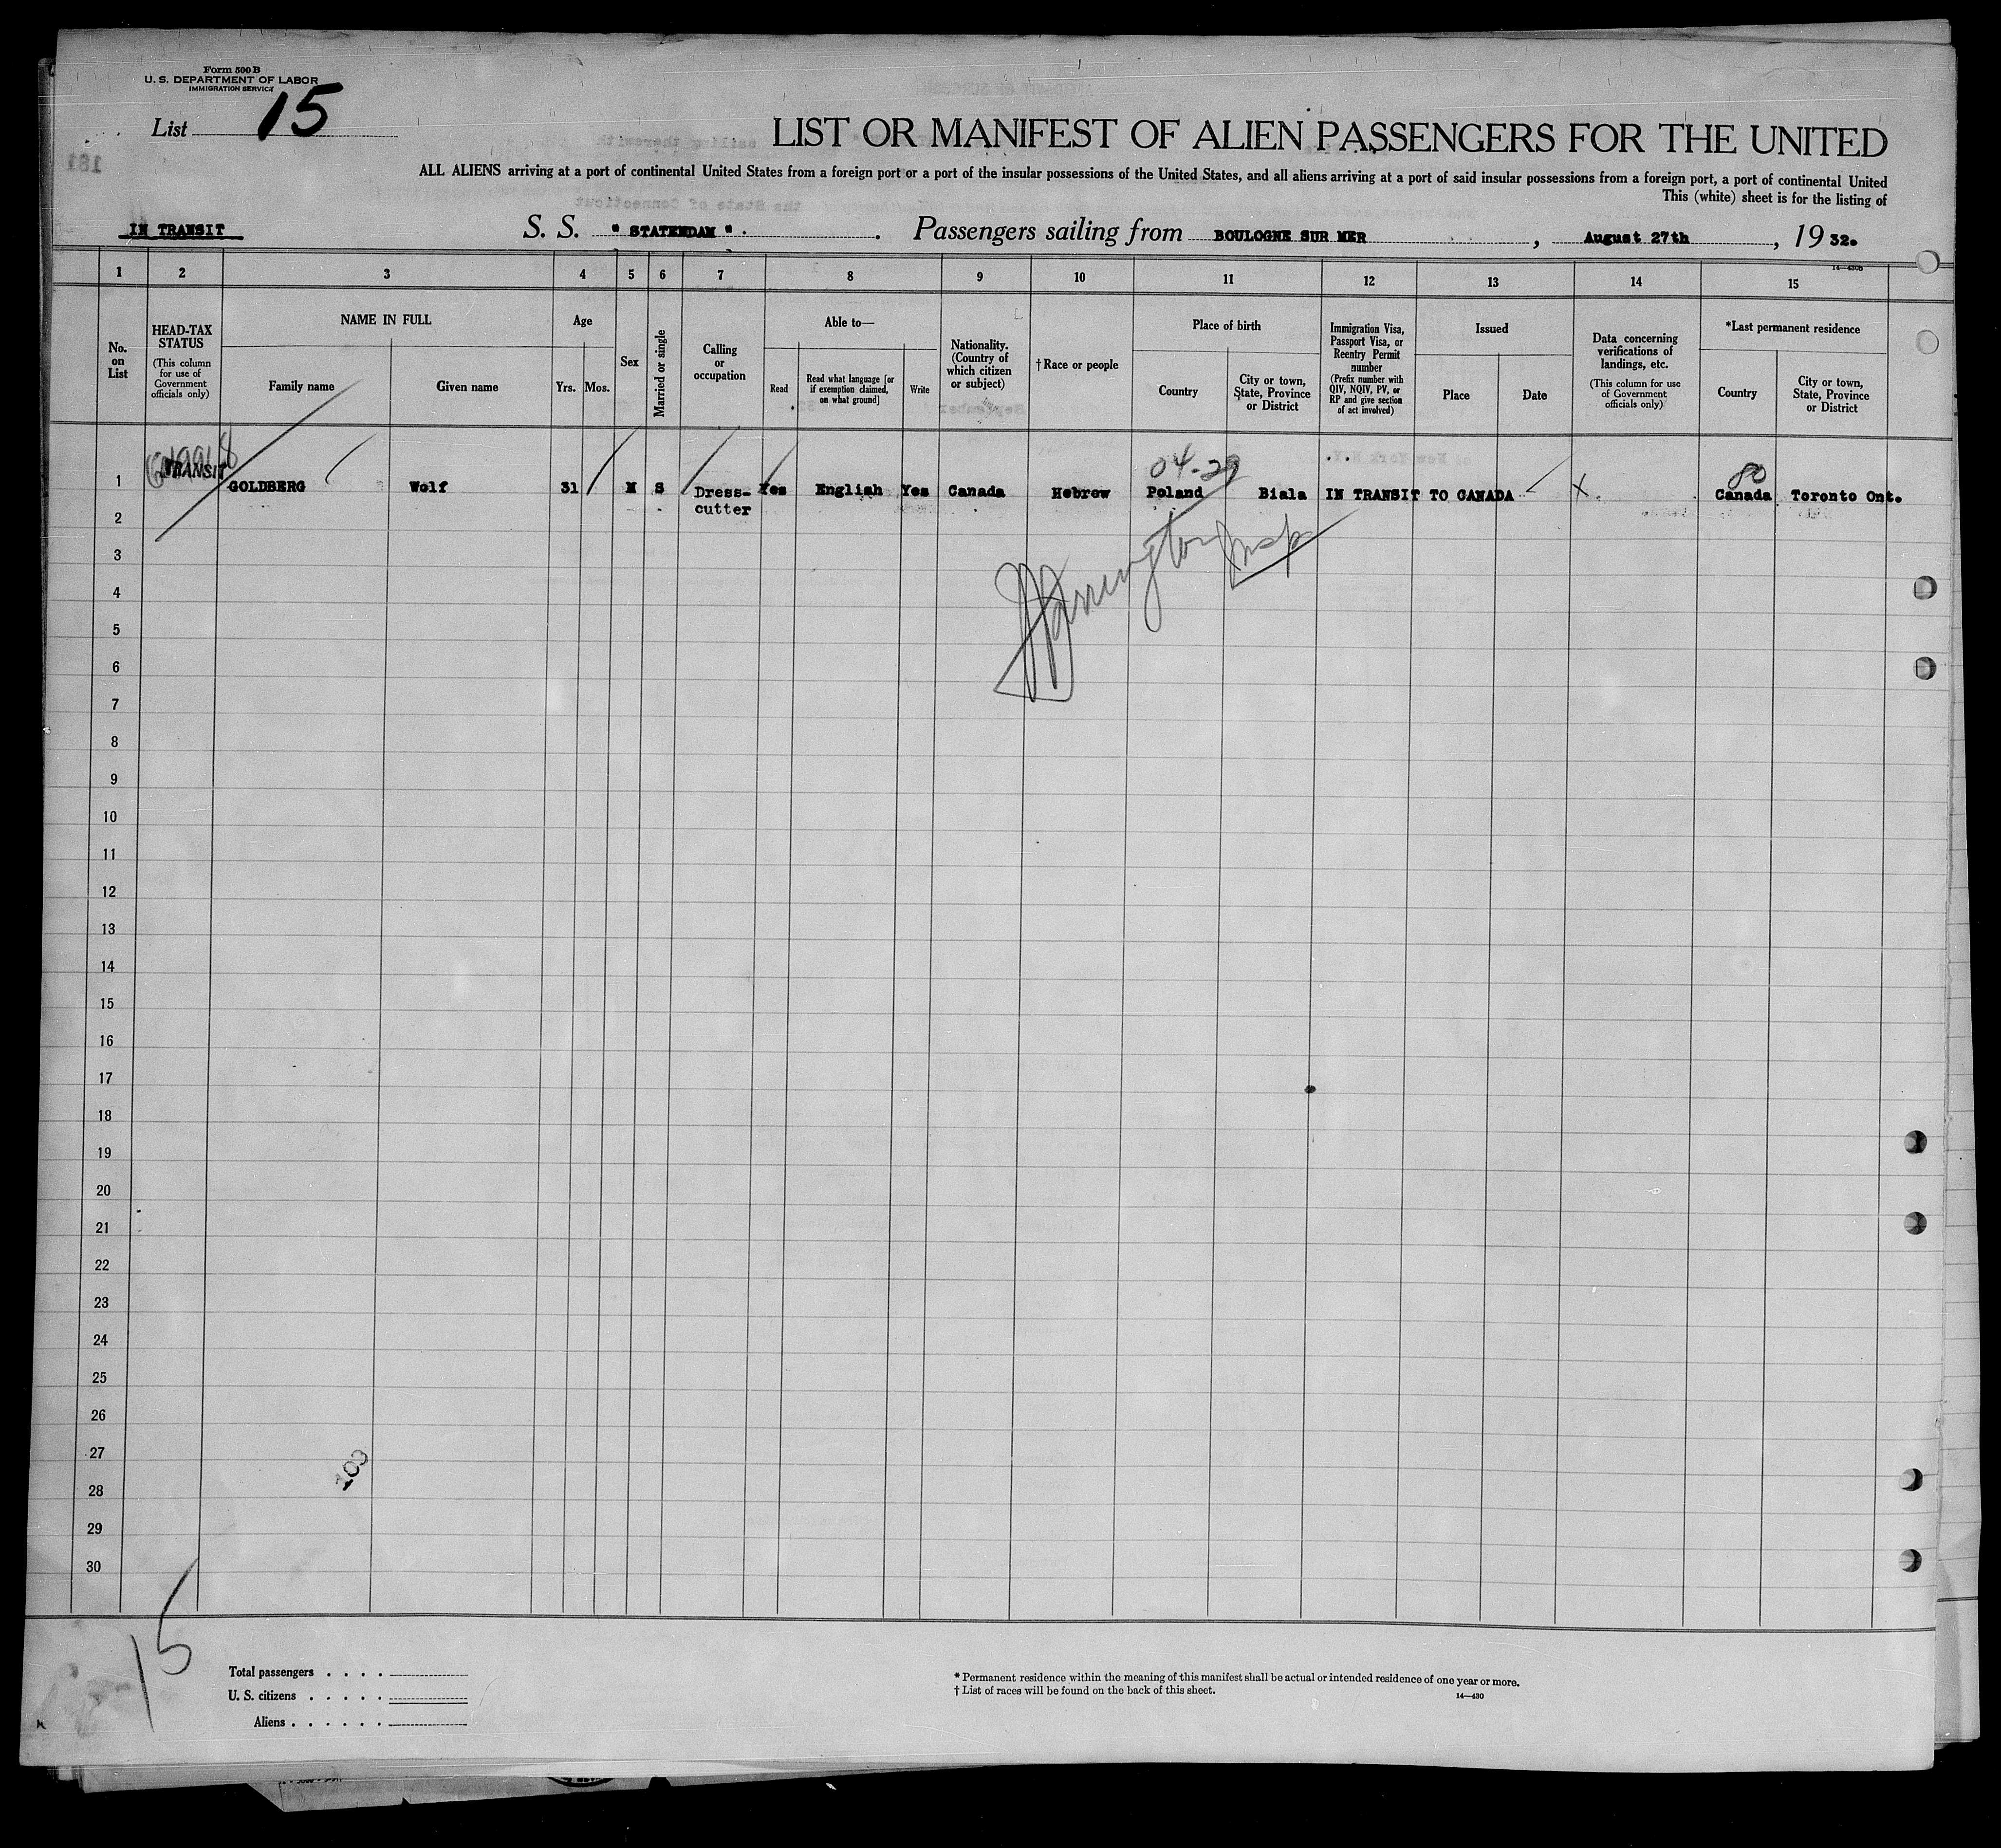 Form 500 B
U. S. DEPARTMENT OF LABOR
IMMIGRATION SERVICE
List 15
LIST OR MANIFEST OF ALIEN PASSENGERS FOR THE UNITED
ALL ALIENS arriving at a port of continental United States from a foreign port or a port of the insular possessions of the United States, and all aliens arriving at a port of said insular possessions from a foreign port, a port of continental United
This (white) sheet is for the listing of
IN TRANSIT S. S. " STATENDAM " . Passengers sailing from BOULOGNE SUR MER , August 27th , 19 32.
14—430b
1 2 3 4 5 6 7 8 9 10 11 12 13 14 15
No. on List
HEAD-TAX STATUS
(This column for use of Government officials only)
NAME IN FULL
Family name
Given name
Age
Yrs. Mos.
Sex
Married or single
Calling or occupation
Able to—
Read
Read what language [or if exemption claimed, on what ground]
Write
Nationality. (Country of which citizen or subject)
†Race or people
Place of birth
Country
City or town, State, Province or District
Immigration Visa, Passport Visa, or Reentry Permit number
(Prefix number with QIV, NQIV, PV, or RP and give section of act involved)
Issued
Place
Date
Data concerning verifications of landings, etc.
(This column for use of Government officials only)
*Last permanent residence
Country
City or town, State, Province or District
04-29
80
1 TRANSIT GOLDBERG Wolf 31 M S Dress- Yes English Yes Canada Hebrew Poland Biala IN TRANSIT TO CANADA X. Canada Toronto Ont.
cutter
2
3
4
5
6
7
8
9
10
11
12
13
14
15
16
17
18
19
20
21
22
23
24
25
26
27
28
29
30
103
15
Total passengers . . . .
U. S. citizens . . . . .
Aliens . . . . . .
* Permanent residence within the meaning of this manifest shall be actual or intended residence of one year or more.
† List of races will be found on the back of this sheet.
14—430